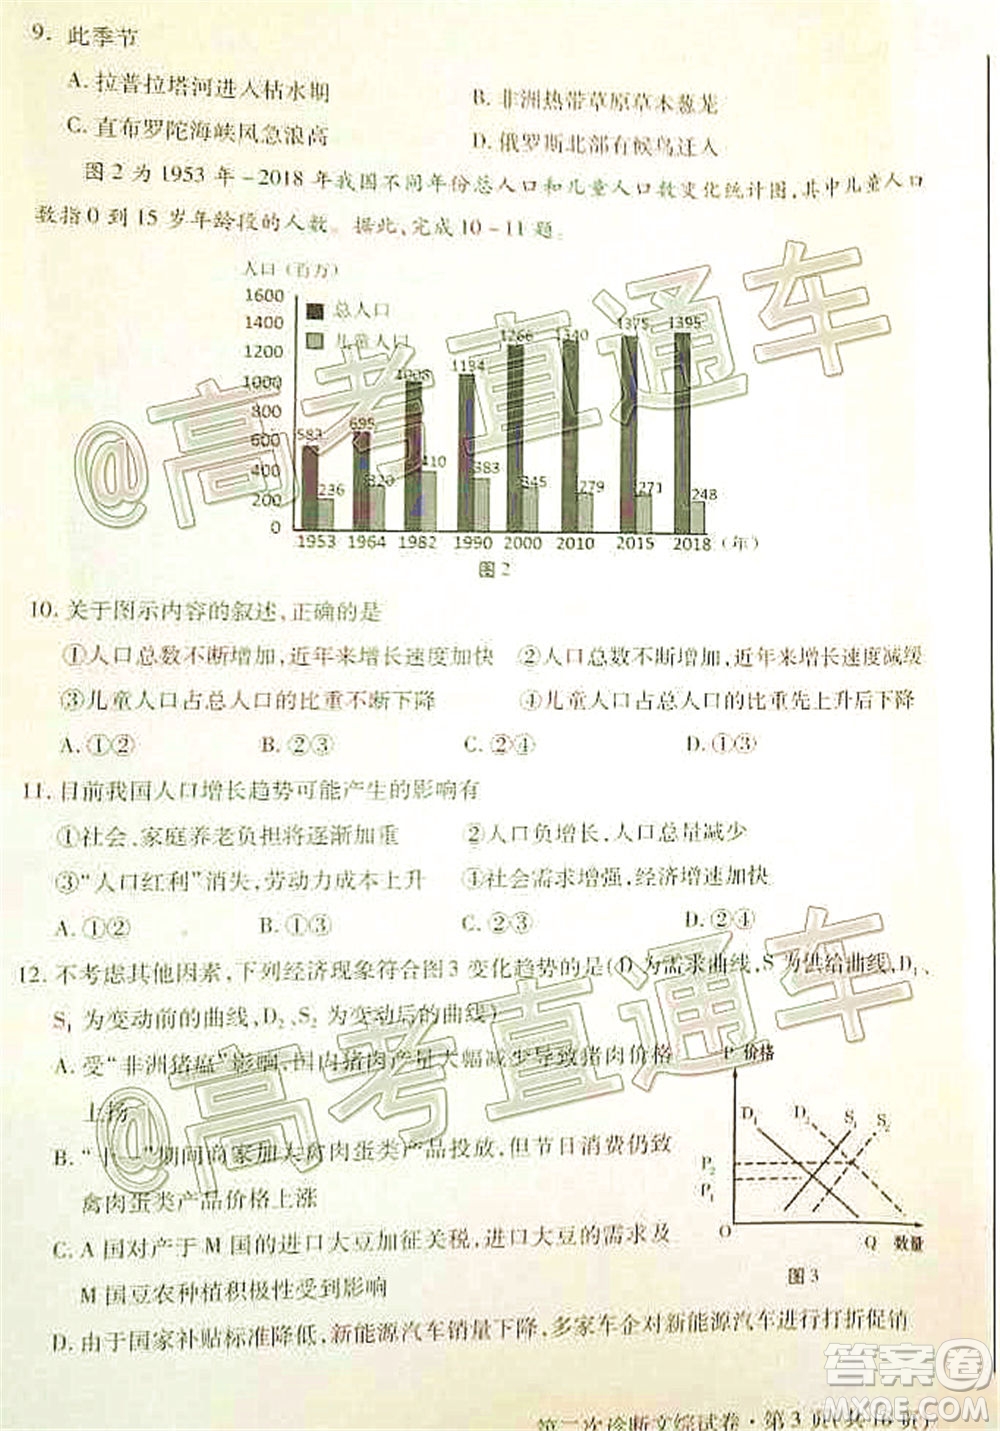 9. 此季节
A. 拉普拉塔河进入枯水期
B. 非洲热带草原草木葱茏
C. 直布罗陀海峡风急浪高
D. 俄罗斯北部有候鸟迁入
图 2 为 1953 年－2018 年我国不同年份总人口和儿童人口数变化统计图,其中儿童人口
数指 0 到 15 岁年龄段的人数。据此,完成 10－11 题。
人口（百万）
1600
1400
1200
1000
800
600
400
200
0
总人口
儿童人口
583 695 1008 1134 1266 1340 1375 1395
236 320 410 383 345 279 271 248
1953 1964 1982 1990 2000 2010 2015 2018 (年)
图 2
10. 关于图示内容的叙述,正确的是
①人口总数不断增加,近年来增长速度加快 ②人口总数不断增加,近年来增长速度减缓
③儿童人口占总人口的比重不断下降 ④儿童人口占总人口的比重先上升后下降
A. ①② B. ②③ C. ②④ D. ①③
11. 目前我国人口增长趋势可能产生的影响有
①社会、家庭养老负担将逐渐加重 ②人口负增长,人口总量减少
③“人口红利”消失,劳动力成本上升 ④社会需求增强,经济增速加快
A. ①② B. ①③ C. ②③ D. ②④
12. 不考虑其他因素,下列经济现象符合图 3 变化趋势的是(D 为需求曲线,S 为供给曲线,D1、
S1 为变动前的曲线,D2、S2 为变动后的曲线)
A. 受“非洲猪瘟”影响,国内猪肉产量大幅减少导致猪肉价格
上扬
B. “十一”期间商家加大禽肉蛋类产品投放,但节日消费仍致
禽肉蛋类产品价格上涨
C. A 国对产于 M 国的进口大豆加征关税,进口大豆的需求及
M 国豆农种植积极性受到影响
D. 由于国家补贴标准降低,新能源汽车销量下降,多家车企对新能源汽车进行打折促销
P 价格
D1 D2 S1 S2
P2
P1
O Q 数量
图 3
第二次诊断文综试卷·第 3 页(共 16 页)
@高考直通车
@高考直通车
答案圈
MXQE.COM